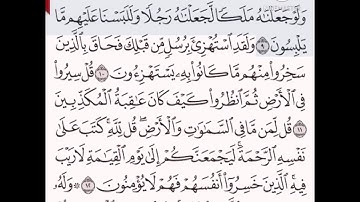 وَلَوْ جَعَلْنَٰهُ مَلَكًا لَّجَعَلْنَٰهُ رَجُلًا وَلَلَبَسْنَا عَلَيْهِم مَّا
يَلْبِسُونَ ٩ وَلَقَدِ ٱسْتُهْزِئَ بِرُسُلٍ مِّن قَبْلِكَ فَحَاقَ بِٱلَّذِينَ
سَخِرُوا۟ مِنْهُم مَّا كَانُوا۟ بِهِۦ يَسْتَهْزِءُونَ ١٠ قُلْ سِيرُوا۟
فِى ٱلْأَرْضِ ثُمَّ ٱنظُرُوا۟ كَيْفَ كَانَ عَٰقِبَةُ ٱلْمُكَذِّبِينَ
١١ قُل لِّمَن مَّا فِى ٱلسَّمَٰوَٰتِ وَٱلْأَرْضِ ۖ قُل لِّلَّهِ ۚ كَتَبَ عَلَىٰ
نَفْسِهِ ٱلرَّحْمَةَ ۚ لَيَجْمَعَنَّكُمْ إِلَىٰ يَوْمِ ٱلْقِيَٰمَةِ لَا رَيْبَ
فِيهِ ۚ ٱلَّذِينَ خَسِرُوٓا۟ أَنفُسَهُمْ فَهُمْ لَا يُؤْمِنُونَ ١٢ ۞ وَلَهُۥ